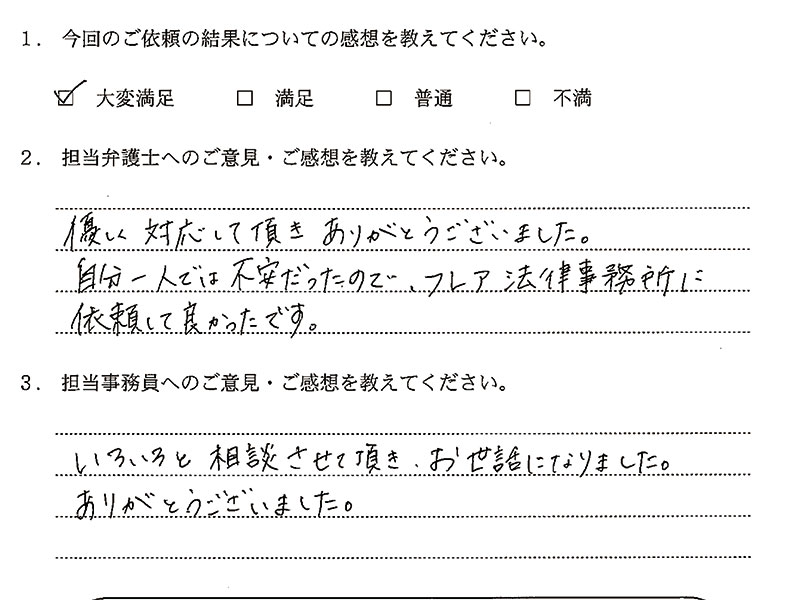 1. 今回のご依頼の結果についての感想を教えてください。
☑ 大変満足 □ 満足 □ 普通 □ 不満
2. 担当弁護士へのご意見・ご感想を教えてください。
優しく対応して頂きありがとうございました。
自分一人では不安だったので、フレア法律事務所に
依頼して良かったです。
3. 担当事務員へのご意見・ご感想を教えてください。
いろいろと相談させて頂き、お世話になりました。
ありがとうございました。